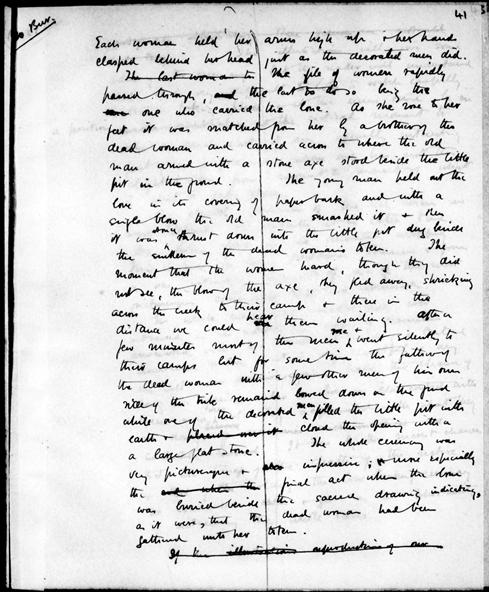 41
Bur.
Each woman held her arms high up & her hands
clasped behind her head, just as the decorated men did.
The last woman to The file of women rapidly
passed through, and the last to do so being the
one who carried the bone. As she rose to her
feet it was snatched from her by a brother of the
dead woman and carried across to where the old
man armed with a stone axe stood beside the little
pit in the ground. The young man held out the
bone in its covering of paper bark and with a
single blow the old man smashed it & then
it was thrust down into the little pit dug beside
the emblem of the dead woman's totem. The
moment that the women heard, though they did
not see, the blow of the axe, they fled away, shrieking
across the creek to their camp & there in the
distance we could hear them wailing. After a
few minutes most of the men rose & went silently to
their camps but for some time the father of
the dead woman with a few other men of his own
side of the tribe remained bowed down on the ground
while one of the decorated men filled the little pit with
earth & placed over it closed the opening with a
a large flat stone. The whole ceremony was
very picturesque & impressive, more especially
the and when the final act when the bone
was buried beside the sacred drawing indicating,
as it were, that the dead woman had been
gathered unto her totem.
If the illustration reproduction of our